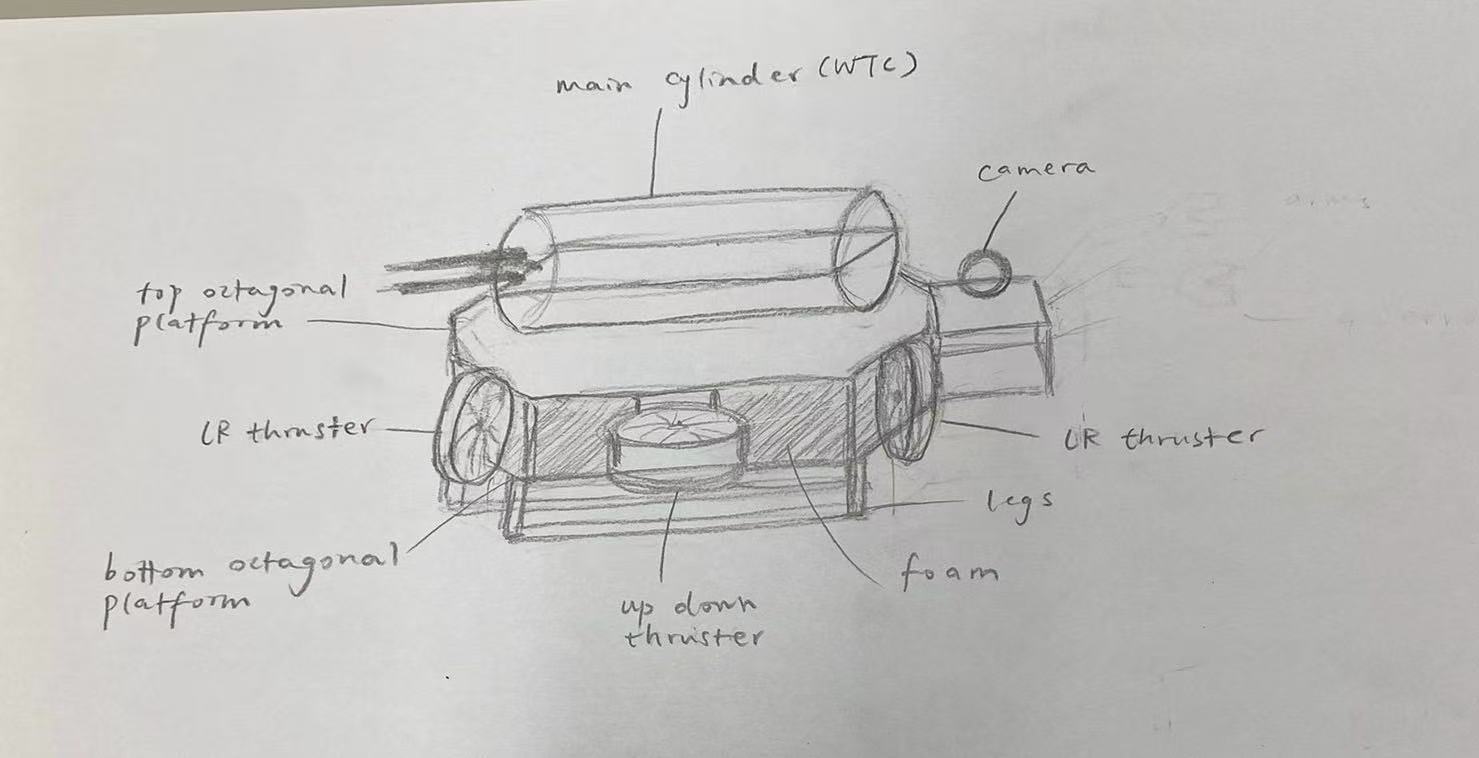 main cylinder (WTC)
camera
top octagonal
platform
LR thruster
LR thruster
legs
foam
bottom octagonal
platform
up down
thruster